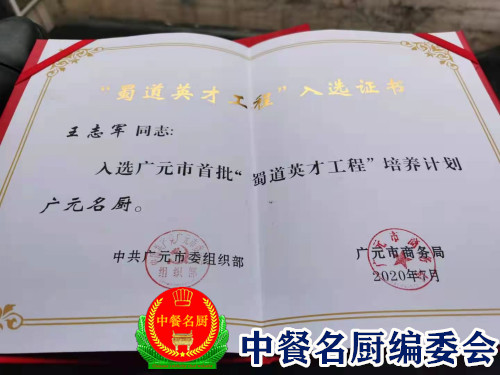 “蜀道英才工程”入选证书
王志军 同志:
入选广元市首批“蜀道英才工程”培养计划
广元名厨。
中共广元市委组织部
广元市商务局
组织部
中餐名厨
中餐名厨编委会